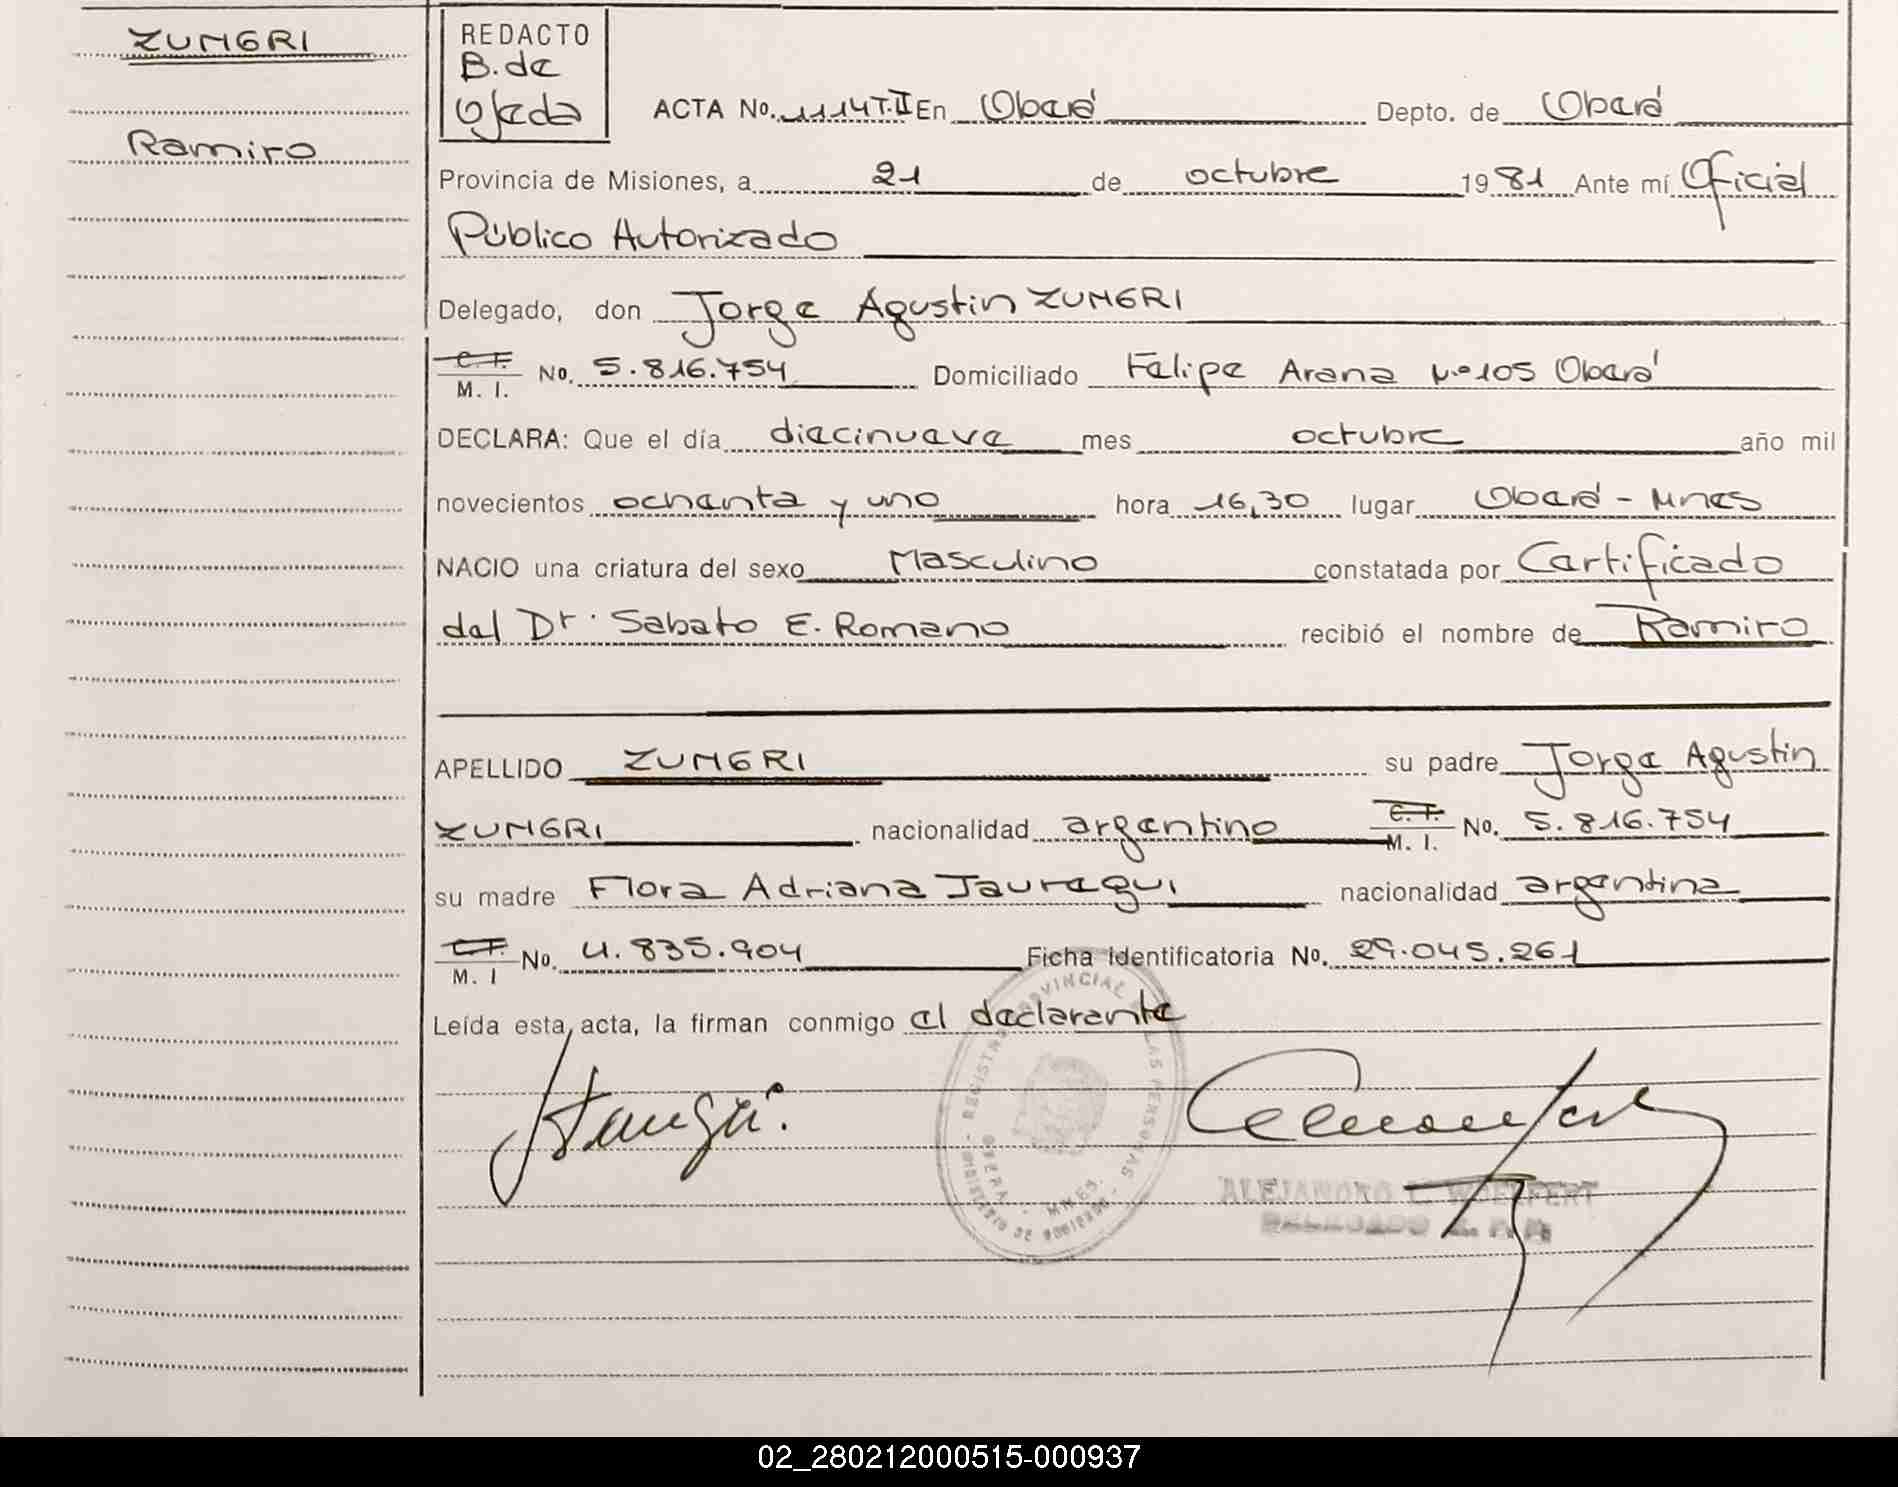 ZUNGRI
Ramiro
REDACTO
B. de
Ojeda
ACTA No. 1114 T.II En Oberá Depto. de Oberá
Provincia de Misiones, a 21 de octubre 1981 Ante mí Oficial
Público Autorizado
Delegado, don Jorge Agustin ZUNGRI
C. I.
M. I. No. 5.816.754 Domiciliado Felipe Arana N.º 105 Oberá
DECLARA: Que el día diecinueve mes octubre año mil
novecientos ochenta y uno hora 16,30 lugar Oberá - Mnes
NACIO una criatura del sexo Masculino constatada por Certificado
del Dr. Sabato E. Romano recibió el nombre de Ramiro
APELLIDO ZUNGRI su padre Jorge Agustin
ZUNGRI nacionalidad argentino C. I. M. I. No. 5.816.754
su madre Flora Adriana Jauregui nacionalidad argentina
C. I.
M. I No. 4.835.904 Ficha Identificatoria No. 29.045.261
Leída esta acta, la firman conmigo el declarante
REGISTRO PROVINCIAL DE LAS PERSONAS
OBERA - MNES.
MINISTERIO DE GOBIERNO
ALEJANDRO L. WOELFERT
DELEGADO R. P. P.
02_280212000515-000937